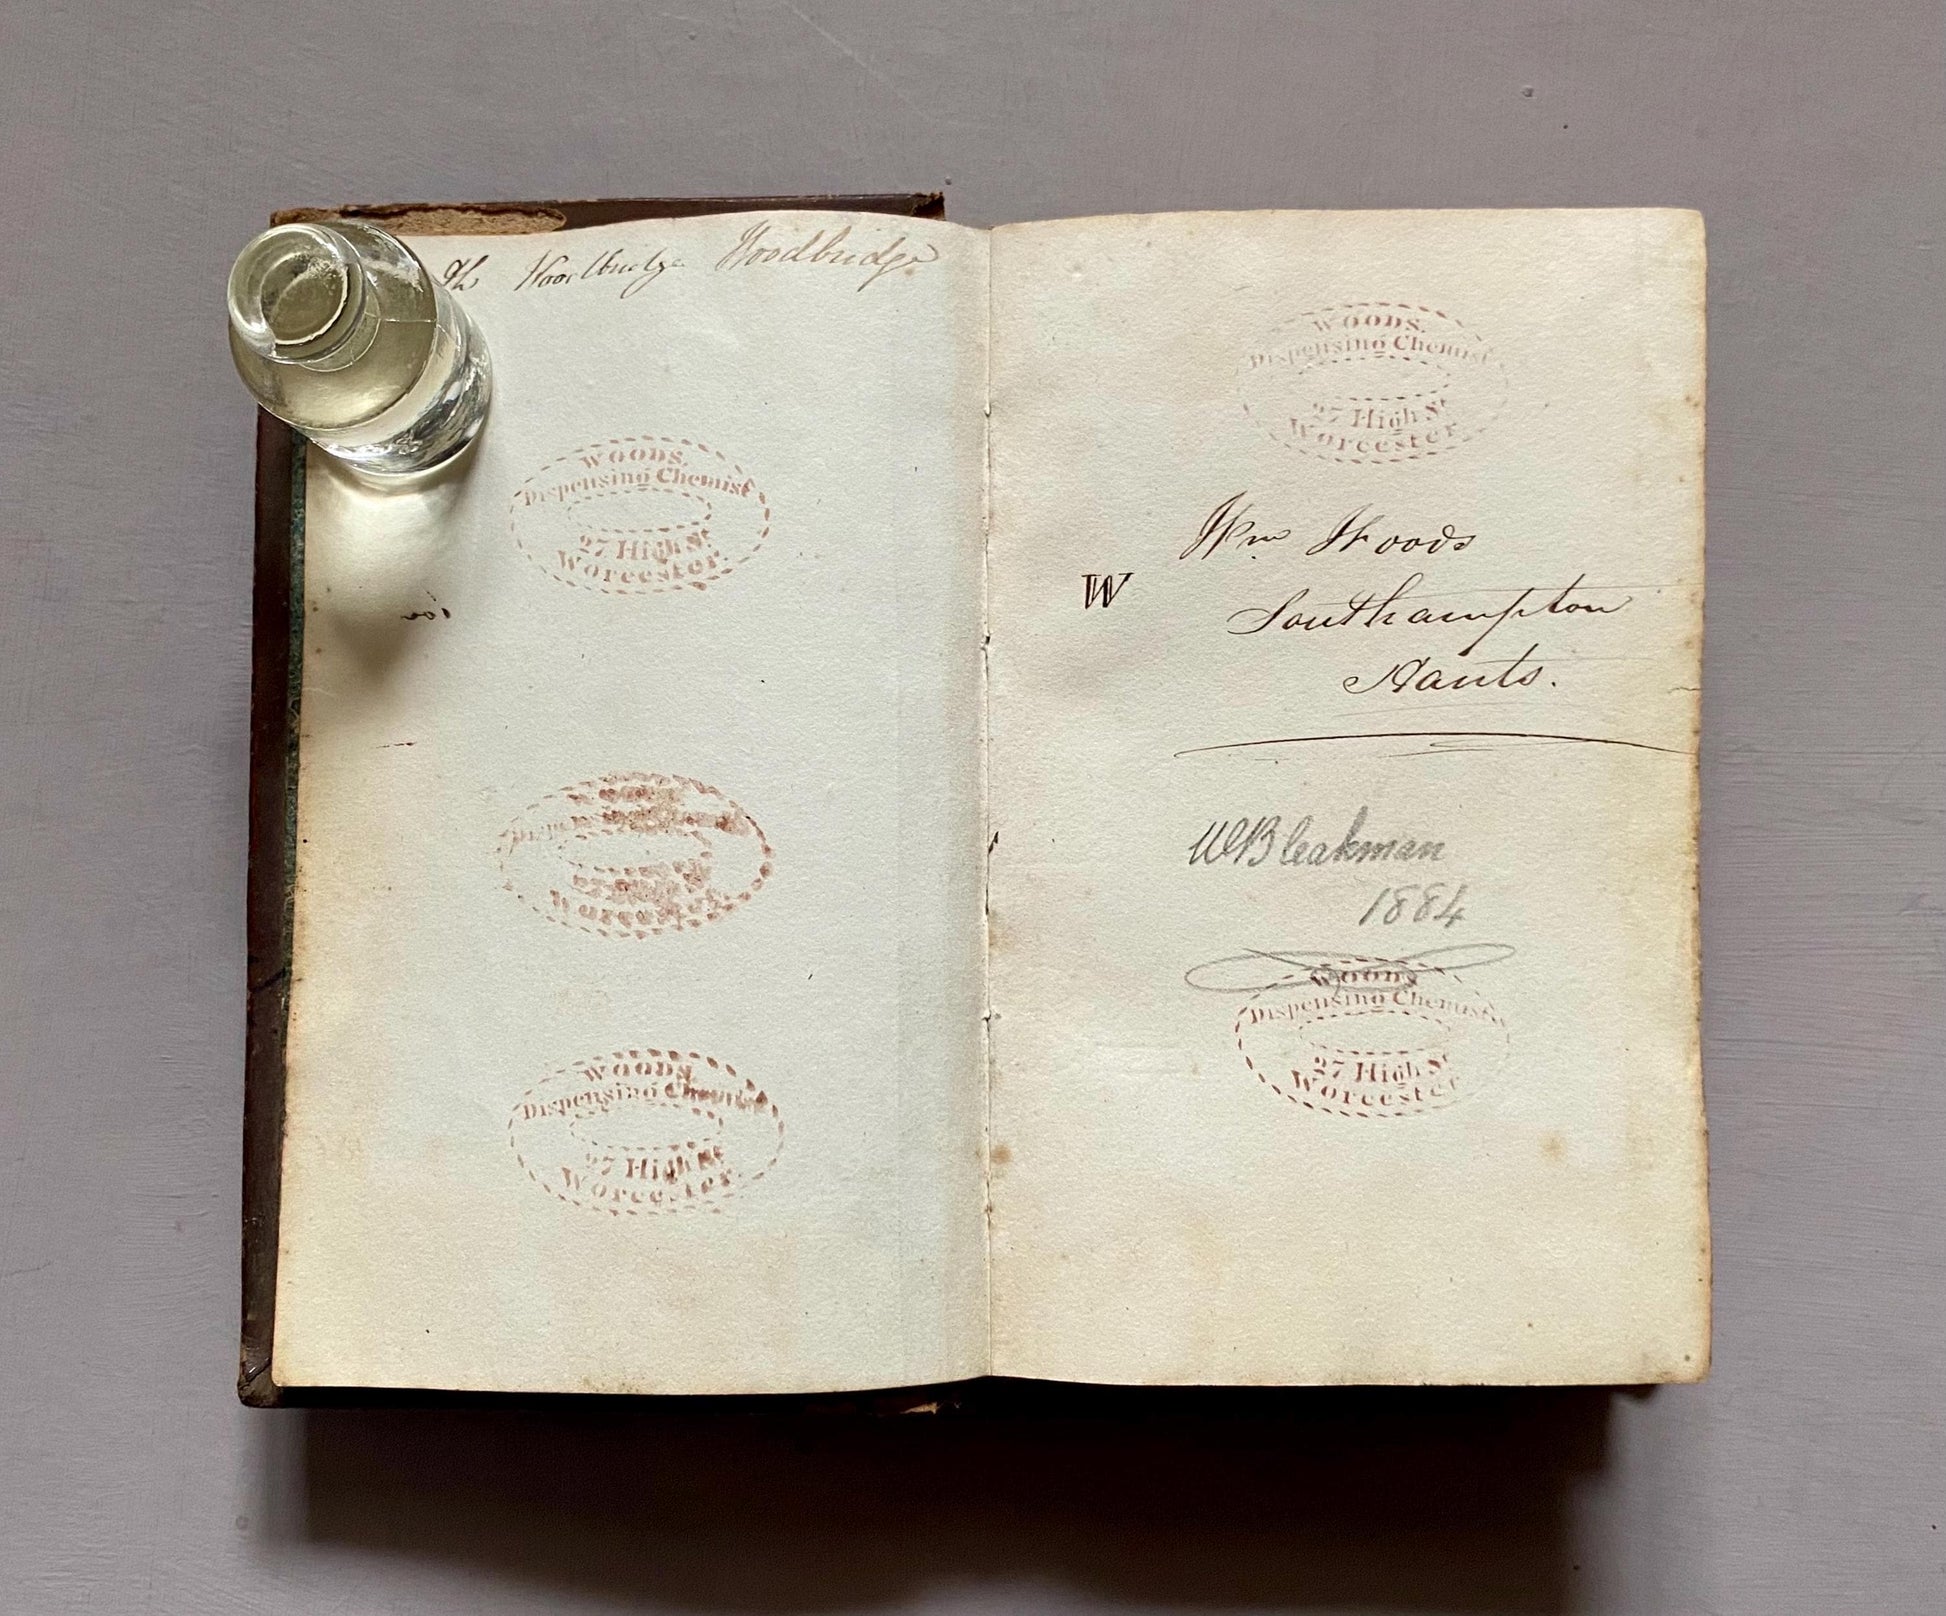 Woodbridge Woodbridge
WOODS.
Dispensing Chemist
27 High St
Worcester.
Dispensing
Worcester.
WOODS.
Dispensing Chemist
27 High St
Worcester.
WOODS.
Dispensing Chemist
27 High St
Worcester.
Wm Woods
W
Southampton
Hants.
W Bleakman
1884
WOODS
Dispensing Chemist
27 High St
Worcester